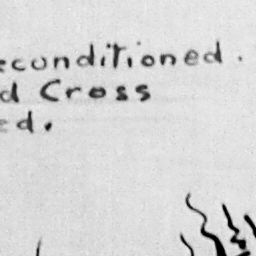 econditioned.
d Cross
ed.